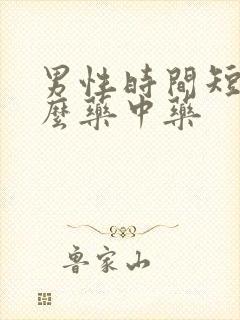 男性時間短
麼藥中藥
魯家山